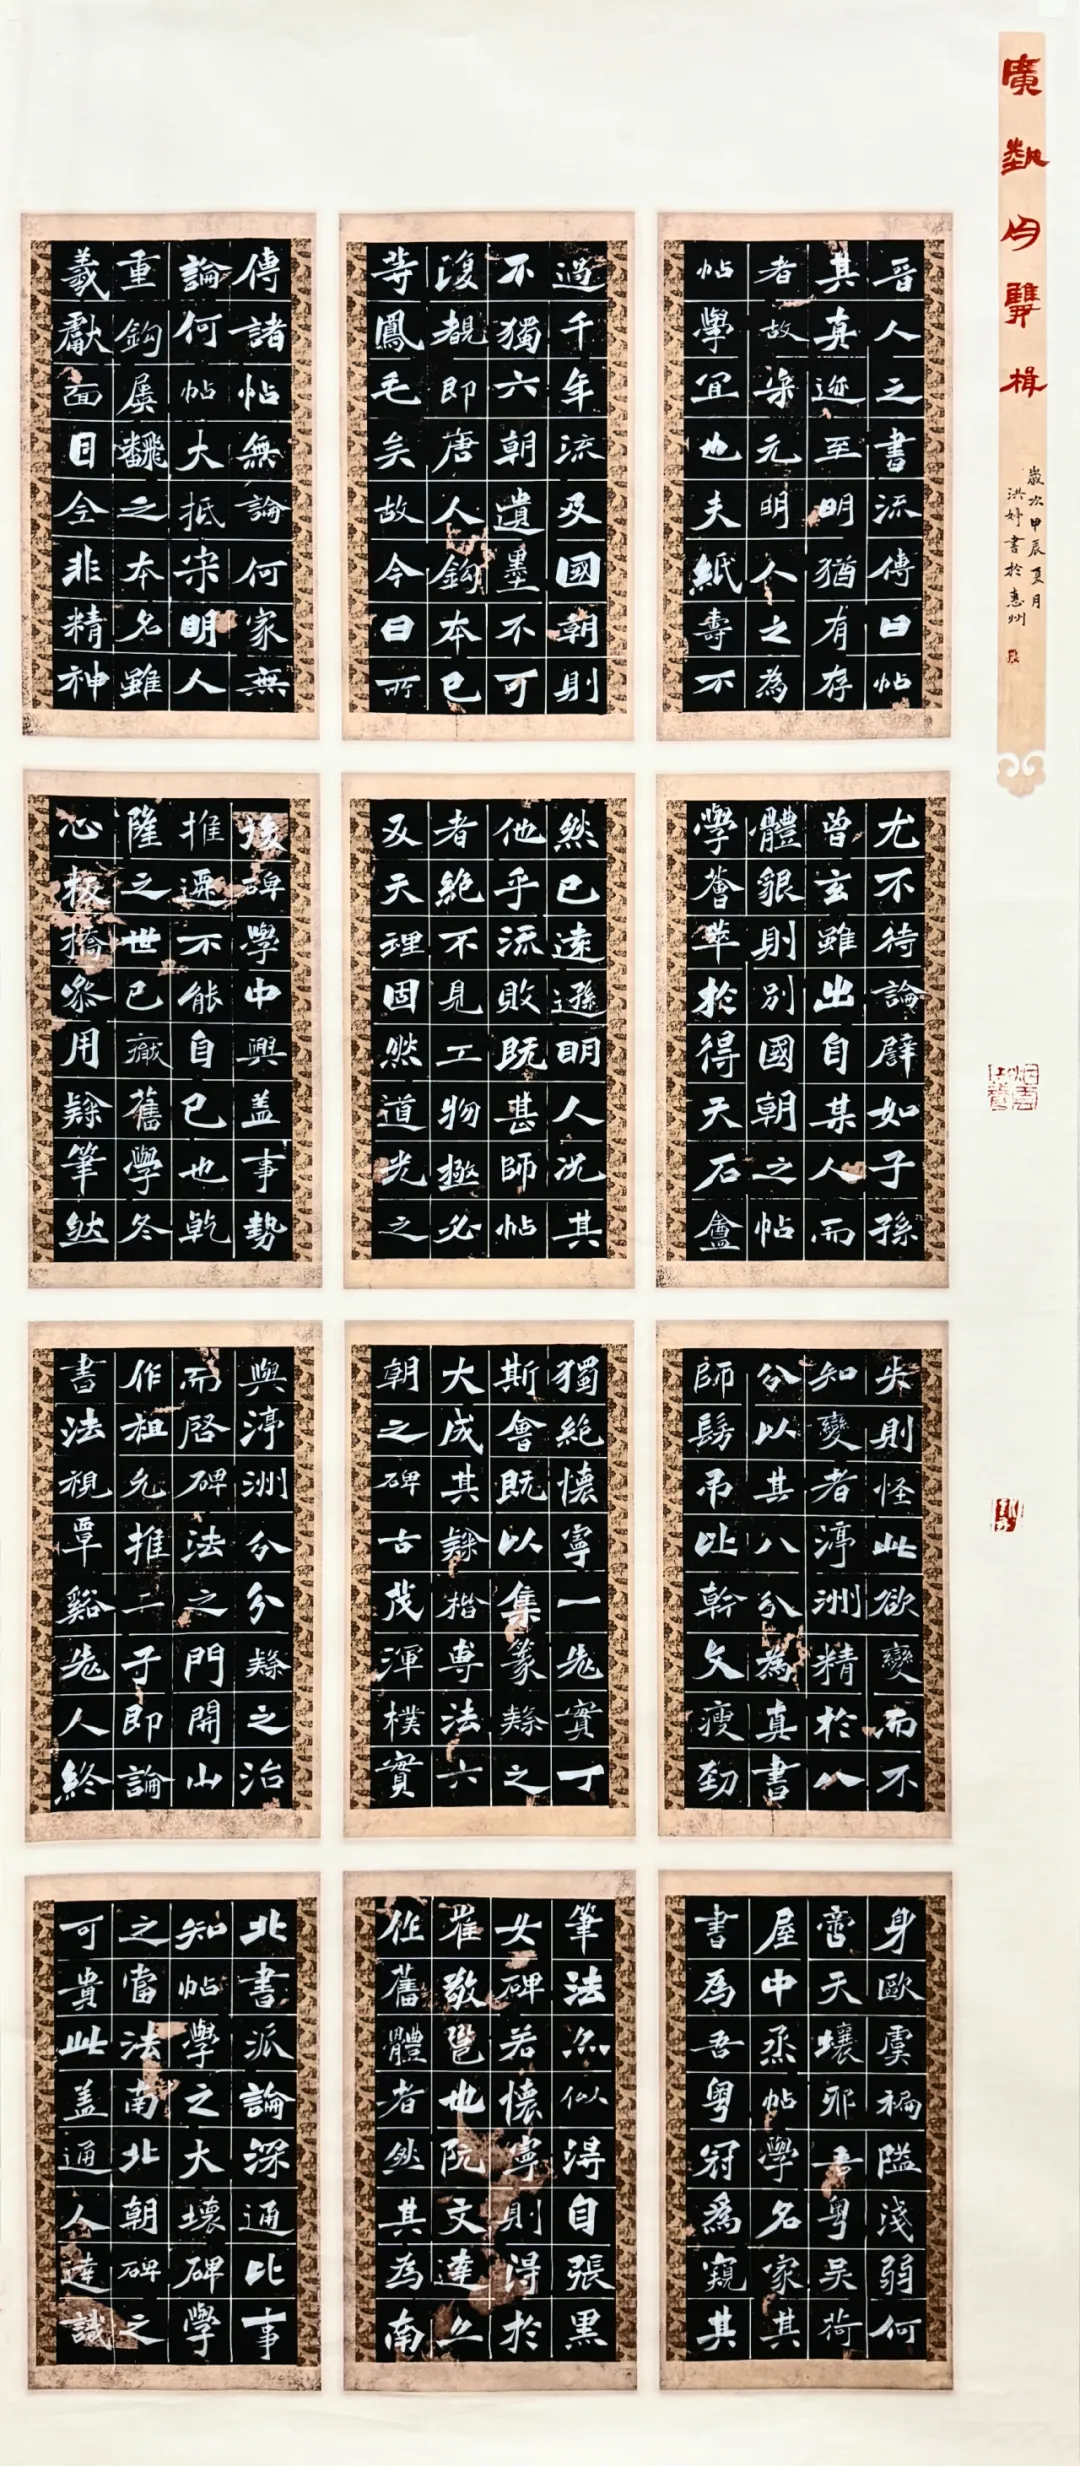 廣蓺舟雙楫
歲次甲辰夏月
洪妤書於惠州
晉人之書流傳曰帖
其真迹至明猶有存
者故宋元明人之為
帖學宜也夫紙壽不
過千年流及國朝則
不獨六朝遺墨不可
復覩即唐人鉤本已
等鳳毛矣故今日所
傳諸帖無論何家無
論何帖大抵宋明人
重鉤屢翻之本名雖
羲獻面目全非精神
尤不待論譬如子孫
曾玄雖出自某人而
體貌則別國朝之帖
學薈萃於得天石盦
然已遠遜明人況其
他乎流敗既甚師帖
者絕不見工物極必
反天理固然道光之
後碑學中興蓋事勢
推遷不能自已也乾
隆之世已厭舊學冬
心板橋參用隸筆然
失則怪此欲變而不
知變者渟洲精於八
分以其八分為真書
師弔比幹文瘦勁
獨絕懷寧一先實丁
斯會既以集篆隸之
大成其隸楷專法六
朝之碑古茂渾樸實
與渟洲分分隸之治
而啓碑法之門開山
作祖允推二子即論
書法視覃谿先人終
身歐虞褊隘淺弱何
啻天壤邪吾粵吳荷
屋中丞帖學名家其
書為吾粵冠為窺其
筆法亦似得自張黑
女碑若懷寧則得於
崔敬邕也阮文達亦
作舊體者然其為南
北書派論深通此事
知帖學之大壞碑學
之當法南北朝碑之
可貴此蓋通人達識